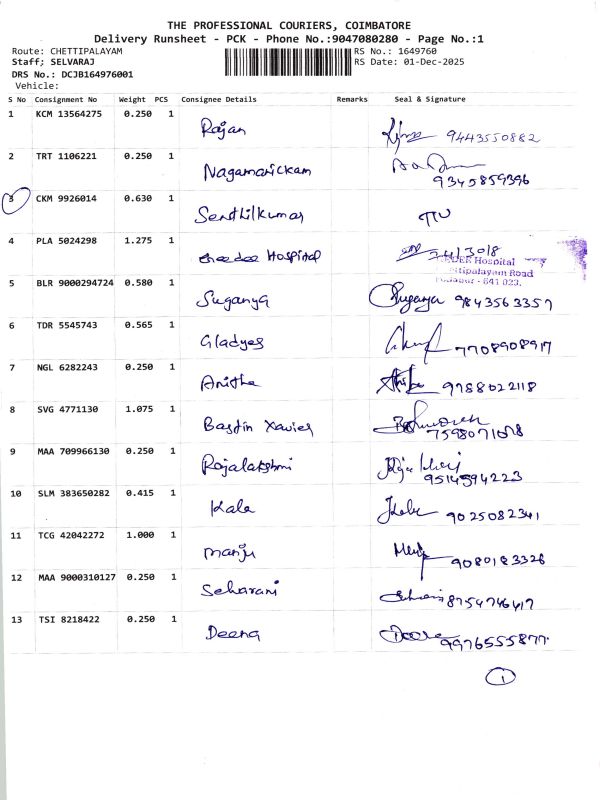 THE PROFESSIONAL COURIERS, COIMBATORE
Delivery Runsheet - PCK - Phone No.:9047080280 - Page No.:1
Route: CHETTIPALAYAM RS No.: 1649760
Staff; SELVARAJ RS Date: 01-Dec-2025
DRS No.: DCJB164976001
Vehicle:
S No Consignment No Weight PCS Consignee Details Remarks Seal & Signature
1 KCM 13564275 0.250 1 Rajan 9443550882
2 TRT 1106221 0.250 1 Nagamanickam
9345859396
3 CKM 9926014 0.630 1 Senthilkumar
4 PLA 5024298 1.275 1 Hospital
Hospital
Road
641 023.
5 BLR 9000294724 0.580 1 Suganya Suganya 9843563357
6 TDR 5545743 0.565 1 Gladyes 7708908917
7 NGL 6282243 0.250 1 Anitha Anitha 9788022118
8 SVG 4771130 1.075 1 Bastin Xavier
9 MAA 709966130 0.250 1 Rajalakshmi
9514594223
10 SLM 383650282 0.415 1 Kala Kala 9025082341
11 TCG 42042272 1.000 1 Manju
9080183326
12 MAA 9000310127 0.250 1 Seharani 8754746417
13 TSI 8218422 0.250 1 Deena Deena
9976555877
1